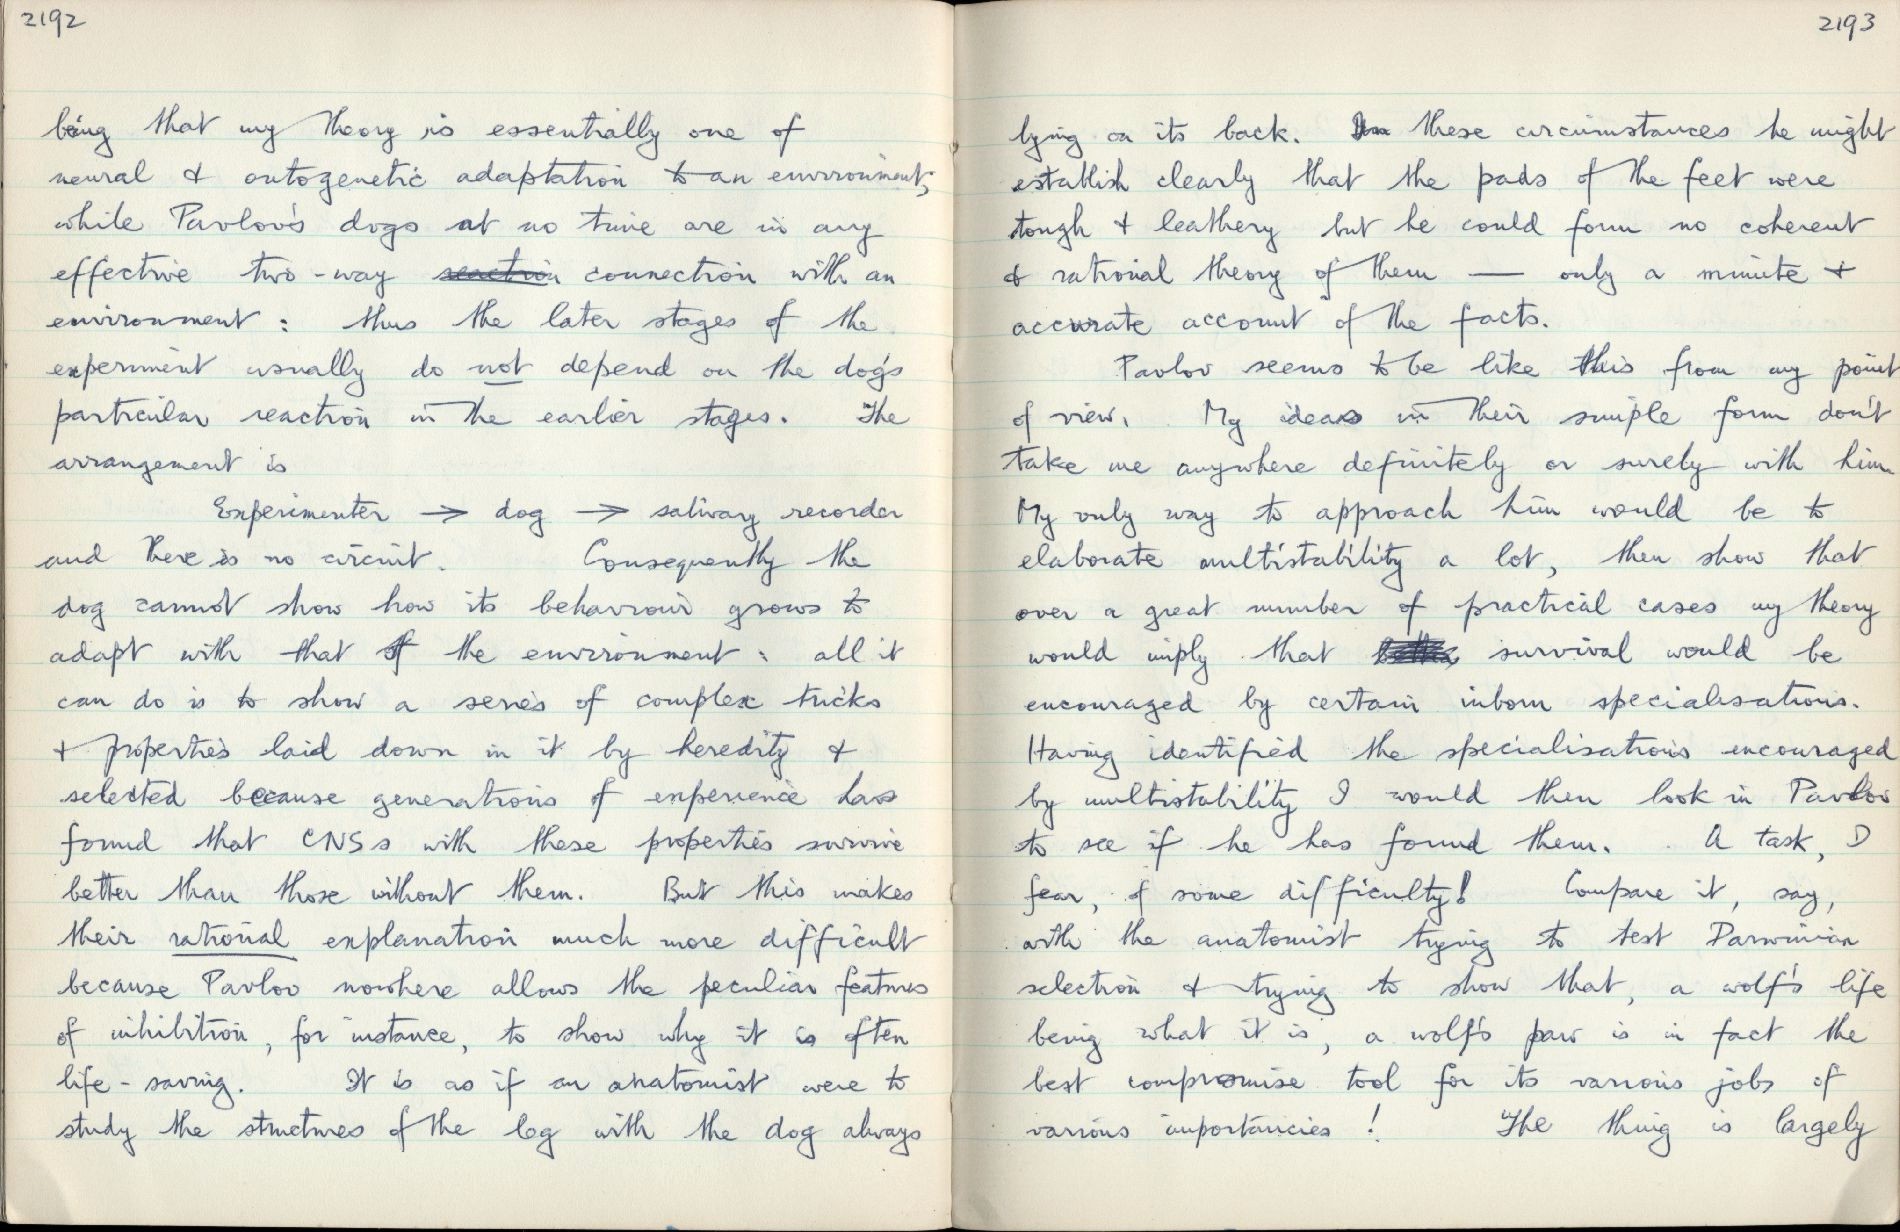 2192
being that my theory is essentially one of
neural & ontogenetic adaptation to an environment;
while Pavlov's dogs at no time are in any
effective two-way reaction connection with an
environment : thus the later stages of the
experiment usually do not depend on the dog's
particular reaction in the earlier stages. The
arrangement is
Experimenter → dog → salivary recorder
and there is no circuit. Consequently the
dog cannot show how its behaviour grows to
adapt with that of the environment : all it
can do is to show a series of complex tricks
& properties laid down in it by heredity &
selected because generations of experience has
found that CNSs with these properties survive
better than those without them. But this makes
their rational explanation much more difficult
because Pavlov nowhere allows the peculiar features
of inhibition, for instance, to show why it is often
life-saving. It is as if an anatomist were to
study the structures of the leg with the dog always
2193
lying on its back. In these circumstances he might
establish clearly that the pads of the feet were
tough & leathery but he could form no coherent
& rational theory of them — only a minute &
accurate account of the facts.
Pavlov seems to be like this from my point
of view. My ideas in their simple form don't
take me anywhere definitely or surely with him
My only way to approach him would be to
elaborate multistability a lot, then show that
over a great number of practical cases my theory
would imply that survival would be
encouraged by certain inborn specialisations.
Having identified the specialisations encouraged
by multistability I would then look in Pavlov
to see if he has found them. A task, I
fear, of some difficulty! Compare it, say,
with the anatomist trying to test Darwinian
selection & trying to show that, a wolf's life
being what it is, a wolf's paw is in fact the
best compromise tool for its various jobs of
various importancies! The thing is largely